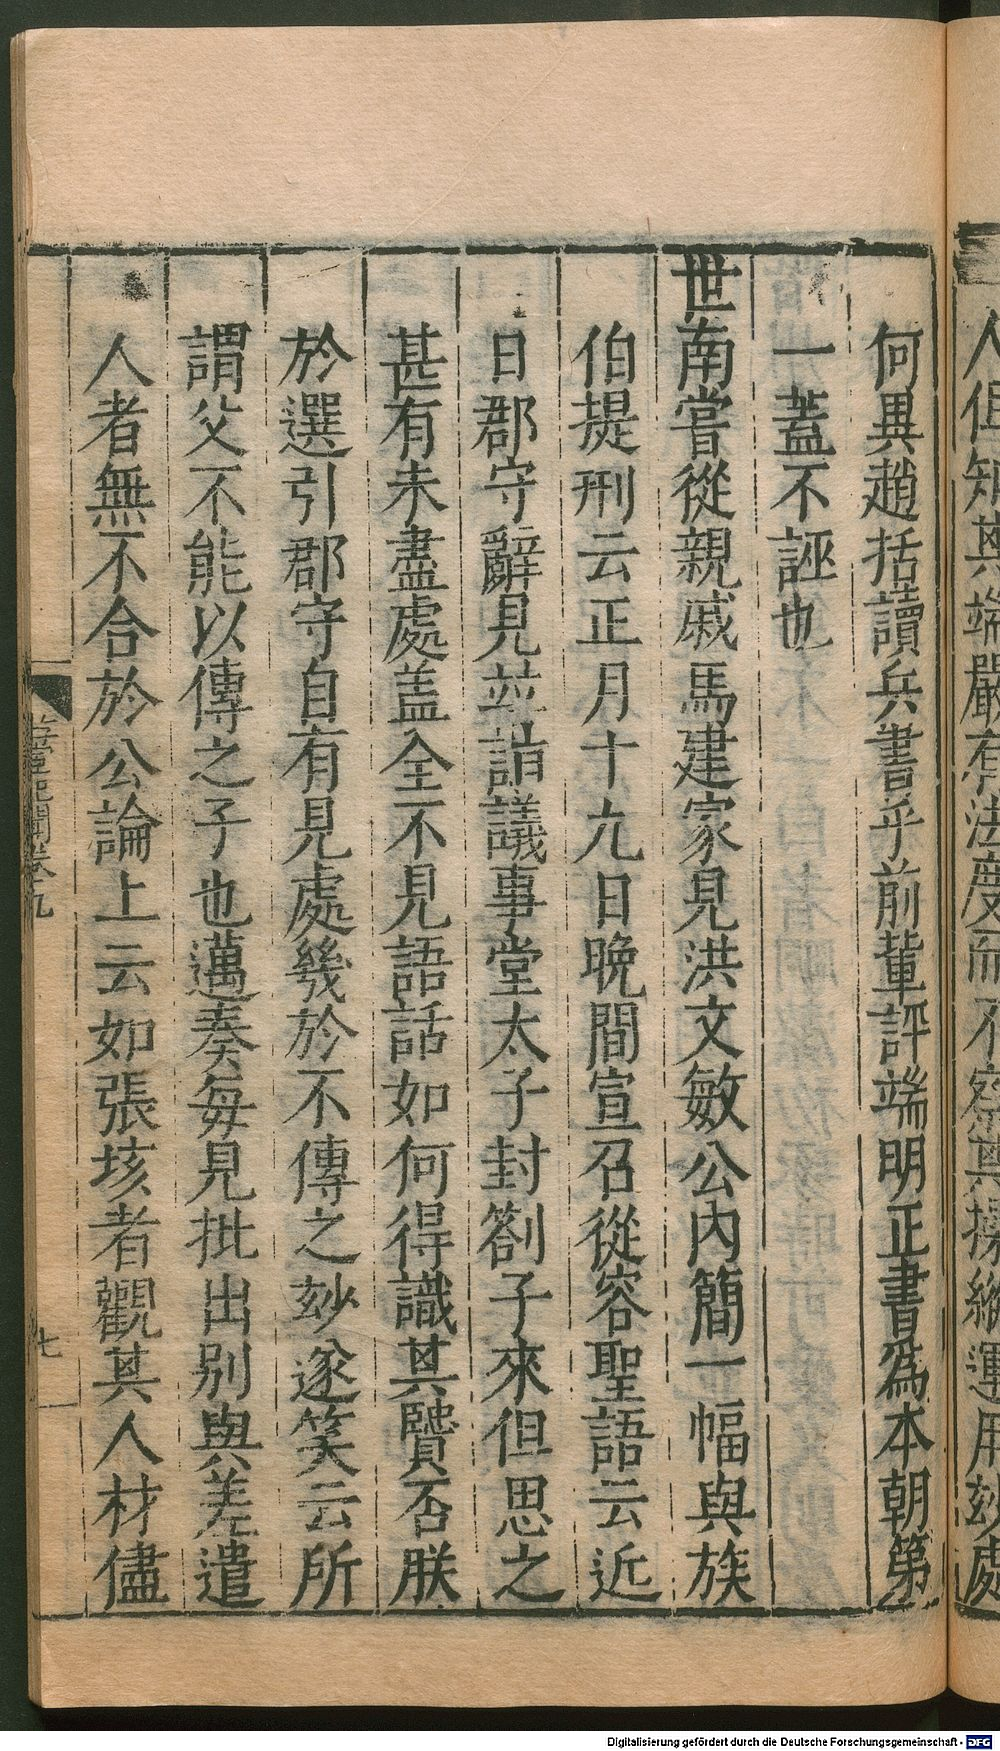 人但知其端嚴有法度而不察其操縱運用玅處
何異趙括讀兵書乎前輩評端明正書爲本朝第
一蓋不誣也
世南嘗從親戚馬建家見洪文敏公内簡一幅與族
伯提刑云正月十九日晚間宣召從容聖語云近
日郡守辭見並詣議事堂太子封劄子來但思之
甚有未盡處盖全不見語話如何得識其賢否朕
於選引郡守自有見處幾於不傳之玅遂笑云所
謂父不能以傳之子也邁奏每見批出别與差遣
人者無不合於公論上云如張垓者觀其人材儘
卷九
七
Digitalisierung gefördert durch die Deutsche Forschungsgemeinschaft - DFG